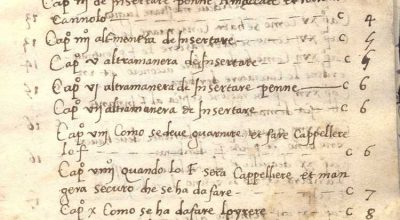 Capº iij de insertare penne
Cannolo C 4
Capº iiij alt. manera de Insertare C 5
Capº v altramanera de Insertare C 5
Capº vj altramanera de Insertare penne C 6
Capº vij altramanera de Insertare C 6
Capº viij Como se deve guarnire et fare Cappellere
lo f. C 6
Capº viiij quando lo f sera Cappelliere et man
gera securo che se ha da fare C 7
Capº x Como se ha da fare C 8